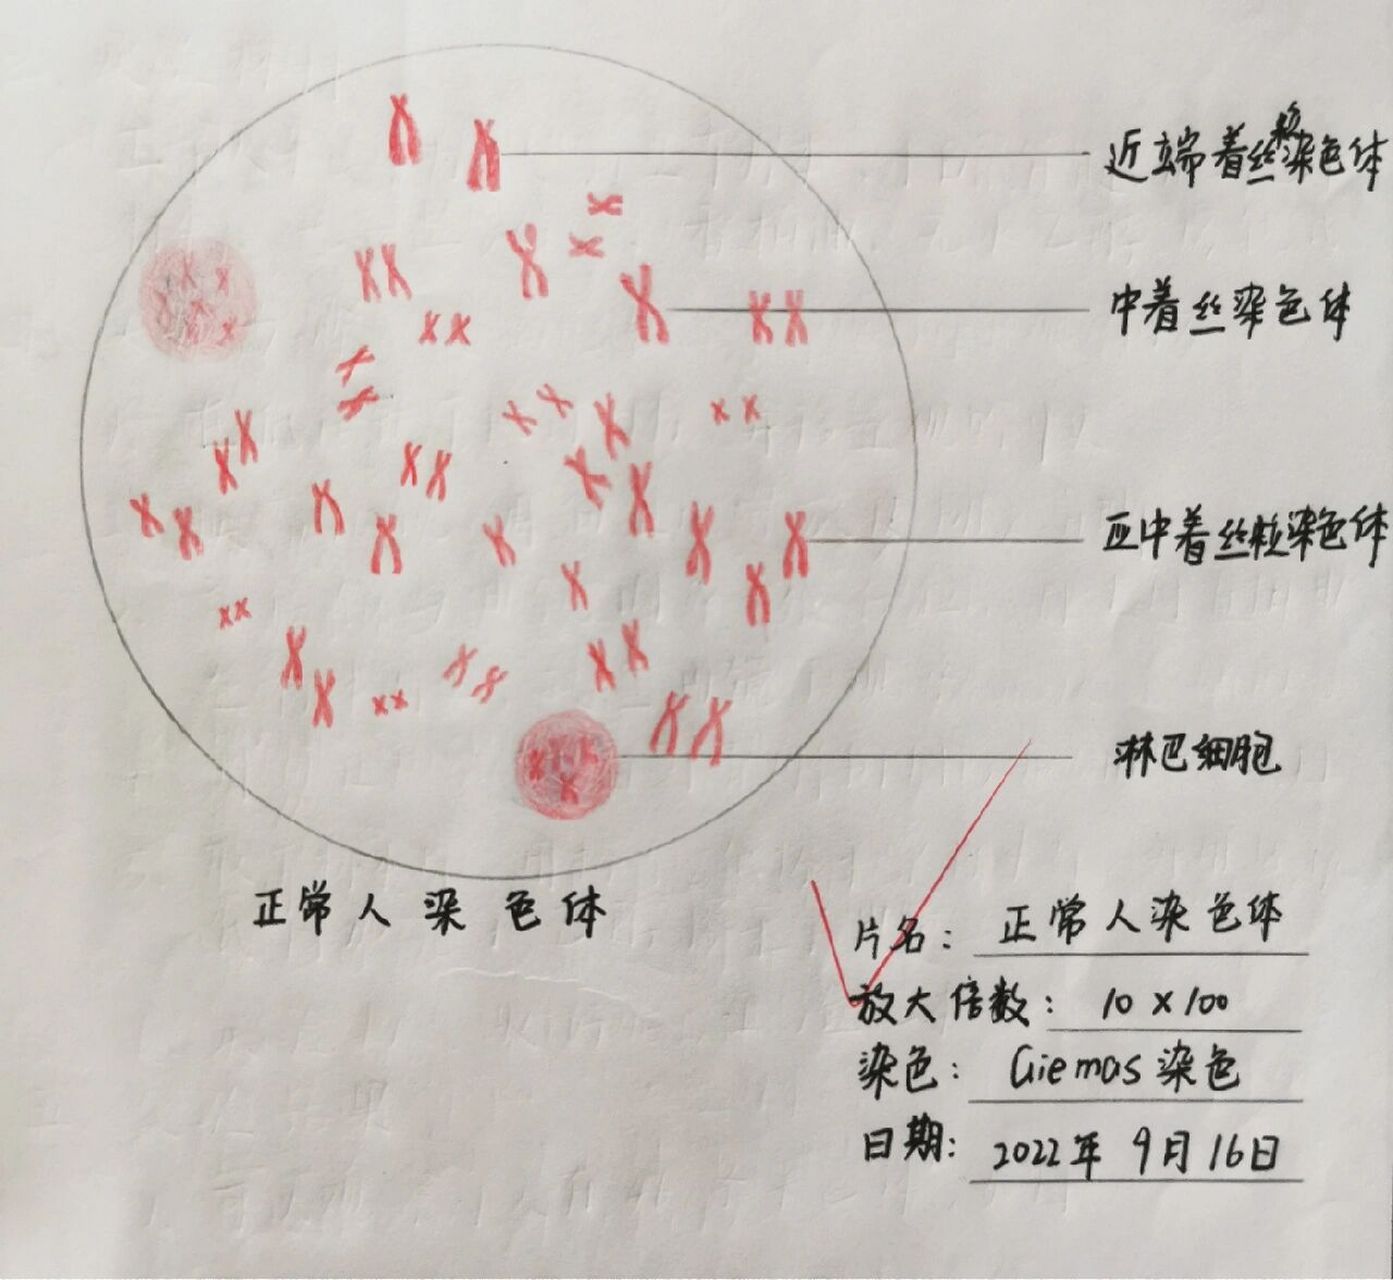 近端着丝粒染色体
中着丝染色体
亚中着丝粒染色体
淋巴细胞
正常人染色体
片名：正常人染色体
放大倍数：10×100
染色：Giemas染色
日期：2022年9月16日